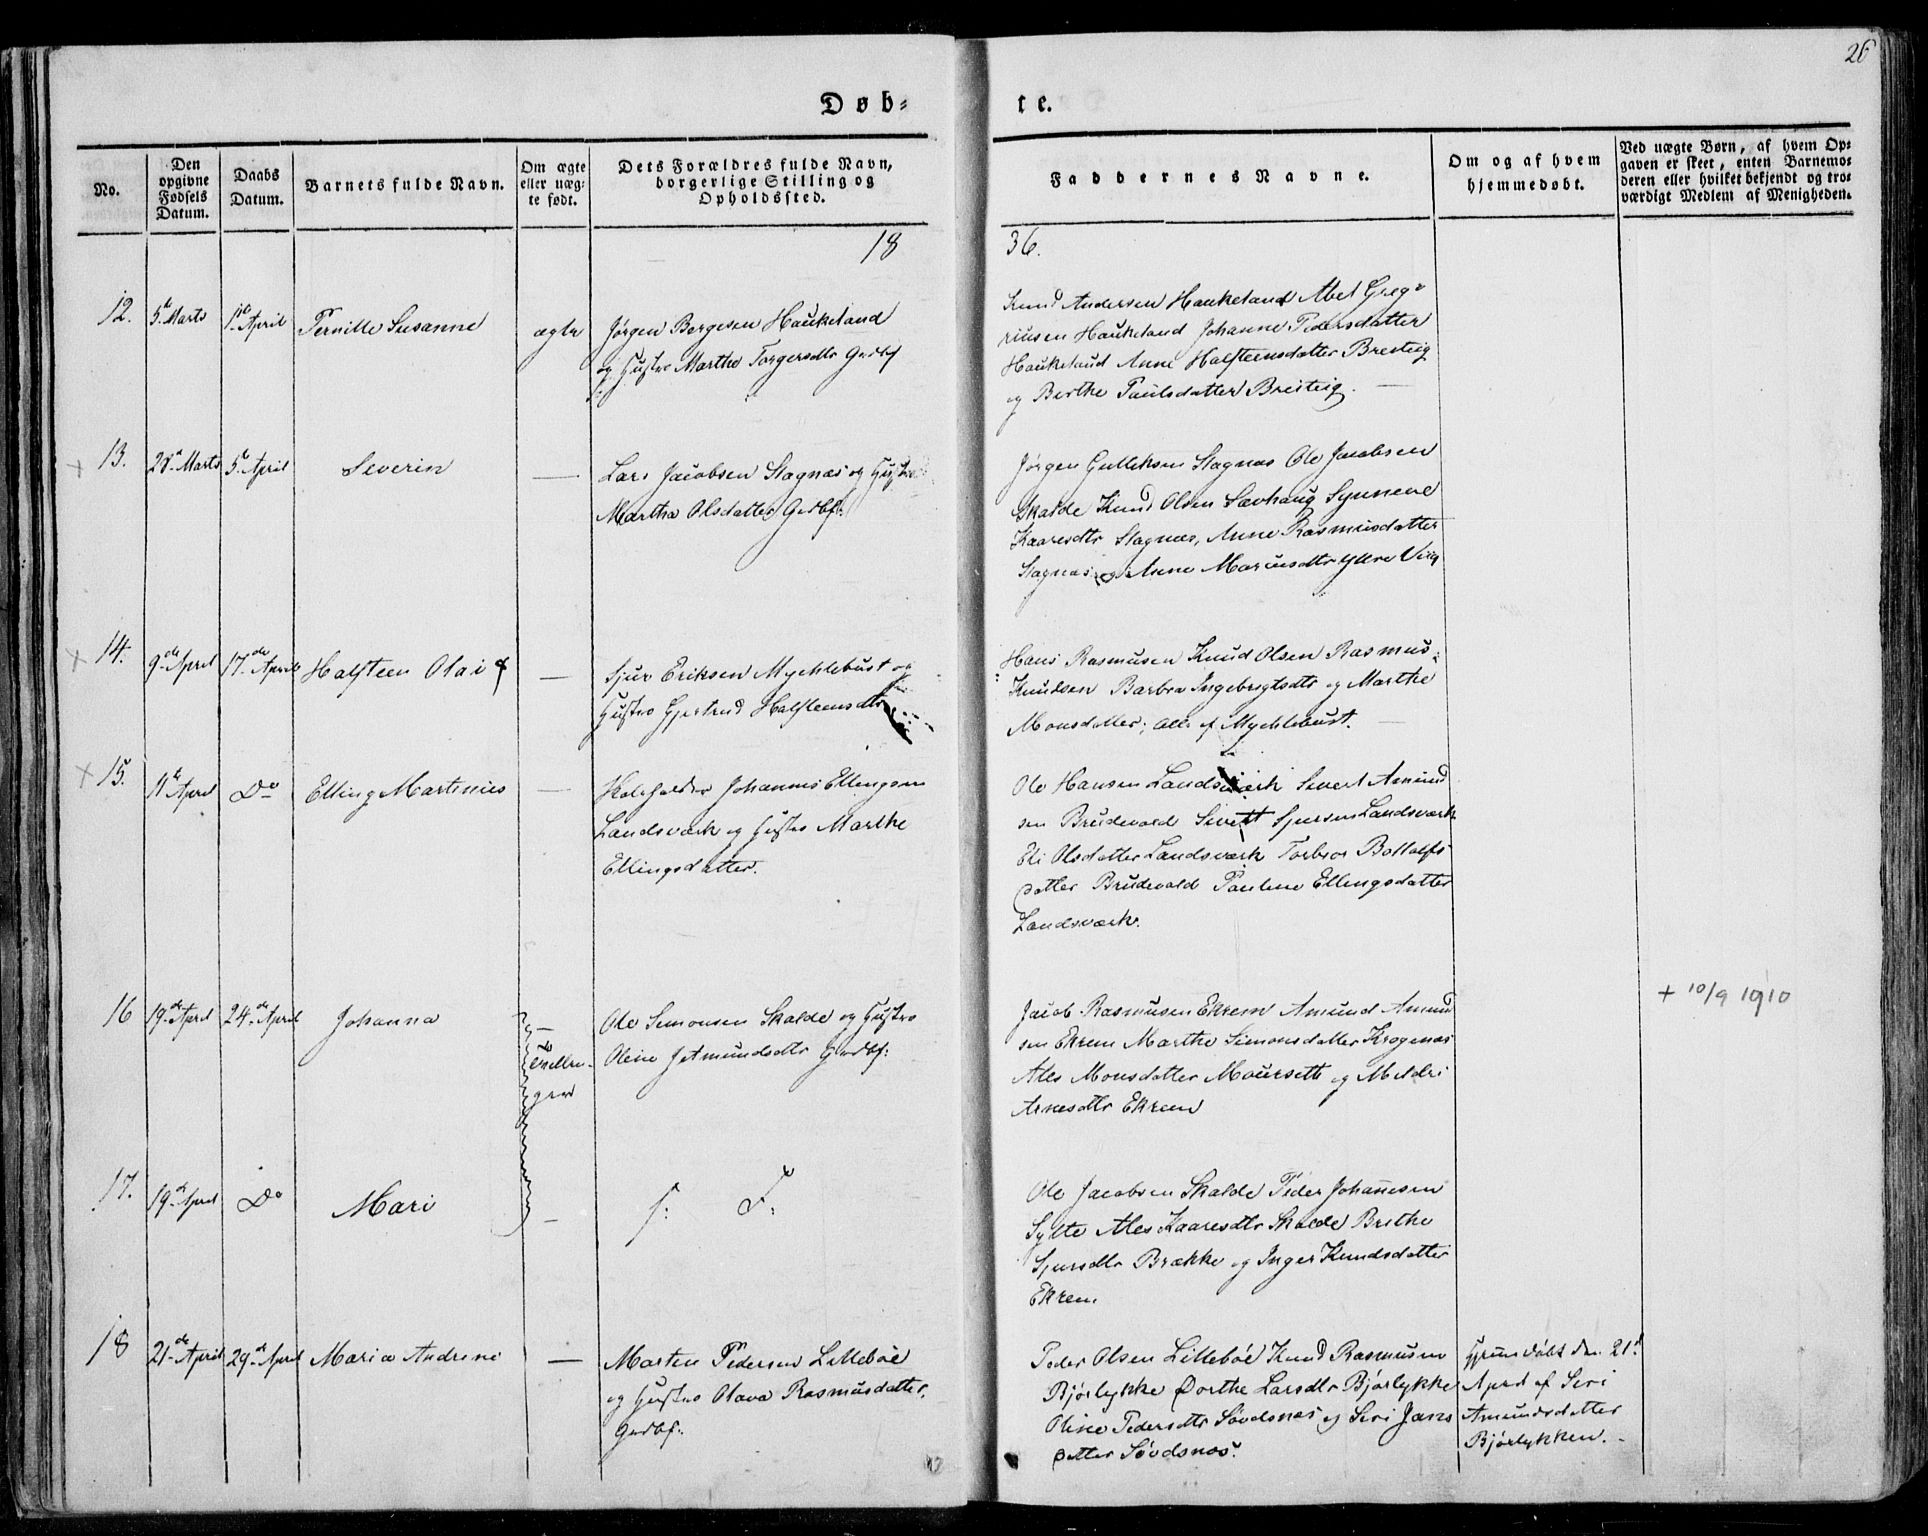 26
Døb-
te.
No.
Den opgivne Fødsels Datum.
Daabs Datum.
Barnets fulde Navn.
Om ægte eller uæg-te født.
Dets Forældres fulde Navn, borgerlige Stilling og Opholdssted.
Faddernes Navne.
Om og af hvem hjemmedøbt.
Ved uægte Børn, af hvem Op-
gaven er skeet, enten Barnemo-
deren eller hvilket bekjendt og tro-
værdigt Medlem af Menigheden.
18
36.
12.
5te Marts
1ste April
Pernille Susanne
ægte
Jørgen Bergesen Haukeland
og Hustro Marthe Torgersdtr Grdbf
Knud Andersen Haukeland Abel Greg-
riusen Haukeland Johanne Pedersdatter
Haukeland Anne Halsteensdatter Breiteig
og Berthe Paulsdatter Breiteig.
13.
28de Marts
5te April
Severin
—
Lars Jacobsen Slagnæs og Hustro
Martha Olsdatter Grdbf:
Jørgen Gulleksen Slagnæs Ole Jacobsen
Skalde Knud Olsen Sævhaug Synneve
Kaaresdtr Slagnæs, Anne Rasmusdatter
Slagnæs og Anne Mariusdtr Ytre Viig
14.
9de April
17de April
Halsteen Olai
—
Sjur Eriksen Mychlebust og
Hustro Gjertrud Halsteensdtr
Hans Rasmusen Knud Olsen Rasmus
Knudsen Barbra Ingebrigtsdtr og Marthe
Monsdatter; alle af Mychlebust.
15.
11te April
Do
Elling Martinius
—
Johannes Ellingsen
Landsværk og Hustro Marthe
Ellingsdatter.
Ole Hansen Landsværk Sivert Amund
sen Brudevold Sivert Sjursen Landsværk
Eli Olsdatter Landsværk Torbror Bottolfs
datter Brudevold Pauline Ellingsdatter
Landsværk.
16
19de April
24de April
Johanna
—
Tvillin-
ger
Ole Simonsen Skalde og Hustro
Oline Jetmundsdtr Grdbf:
Jacob Rasmusen Ekrem Amund Amund
sen Ekrem Marthe Simonsdatter Krogenæs
Ales Monsdatter Mourseth og Mildri
Arnesdtr Ekrem
+ 10/9 1910
17.
19de April
Do
Mari
—
s: F:
Ole Jacobsen Skalde Peder Johanesen
Sylte Ales Kaaresdtr Skalde Brithe
Sjursdtr Brække og Inger Knudsdatter
Ekrem
18
21de April
29de April
Maria Andrine
—
Morten Pedersen Lillebøe
og Hustro Olava Rasmusdatter,
Grdbf:
Peder Olsen Lillebøe Knud Rasmusen
Bjørlykke Dorthe Larsdtr Bjørlykke
Oline Pedersdtr Søvdsnæs og Siri Jans
datter Søvdsnæs.
Hjemdøbt den 21d
April af Siri
Amundsdatter
Bjørlykken.